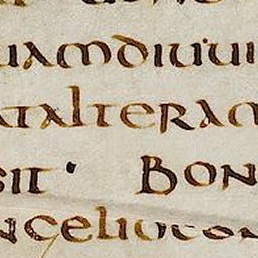 uamdiuiui
atalteram
sit · Bon
ngelio con